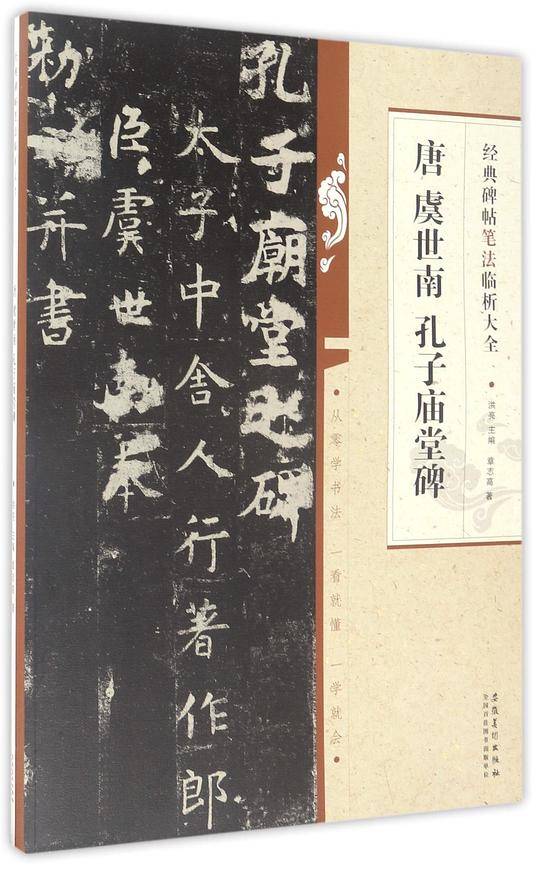 经典碑帖笔法临析大全
洪亮 主编 章志高 著
唐 虞世南 孔子庙堂碑
从零学书法 一看就懂 一学就会
安徽美术出版社
全国百佳图书出版单位
孔子廟堂之碑
太子中舍人行著作郎
臣虞世南奉
勑并書